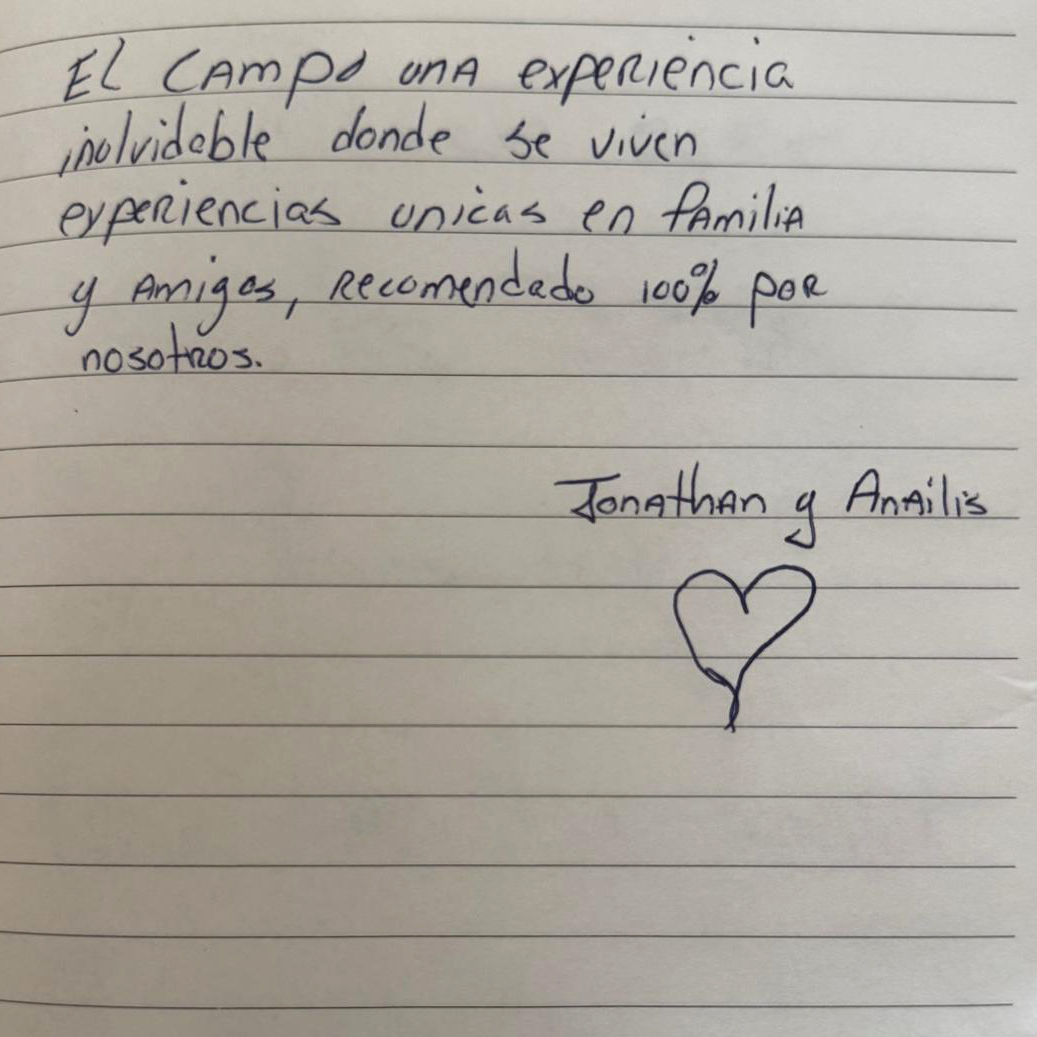 El Campo una experiencia
inolvidable donde se viven
experiencias unicas en familia
y Amigos, Recomendado 100% por
nosotros.
Jonathan y Anailis